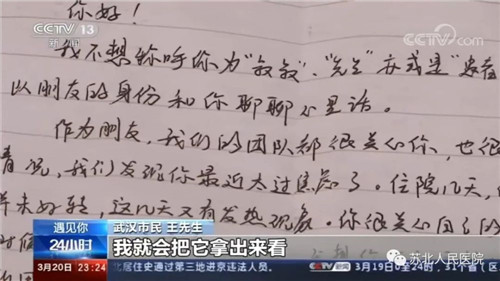 CCTV 13
新闻
CCTV.com
你好!
我不想称呼你为"叔叔"、"先生"亦或是"患者
以朋友的身份和你聊聊心里话。
作为朋友,我们的团队都很关心你,也很
情况,我们发现你最近太过焦虑了。住院几天,
样未好转,这几天又有发热现象。你很关心自己的
遇见你
24小时
武汉市民 王先生
我就会把它拿出来看
3月20日 23:24
居住史通过第三地进京违法人员。
CCTV 新闻
3月19日0至24时,31个省(区
苏北人民医院